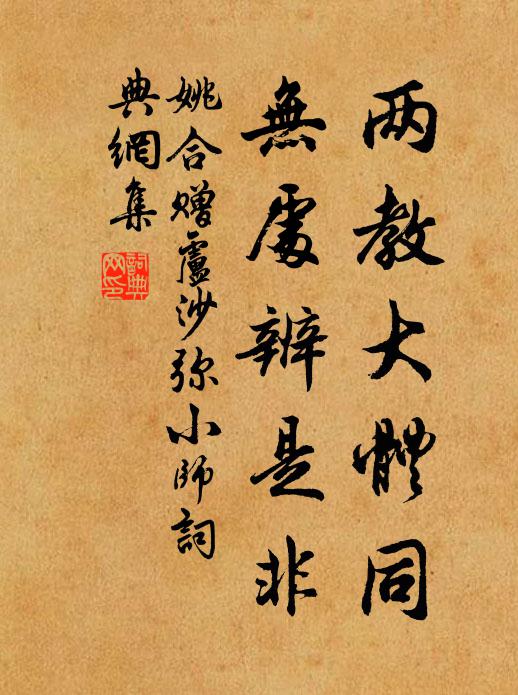 两教大體同
無處辨是非
姚合贈盧沙弥小師詞
典網集
詞典
网印